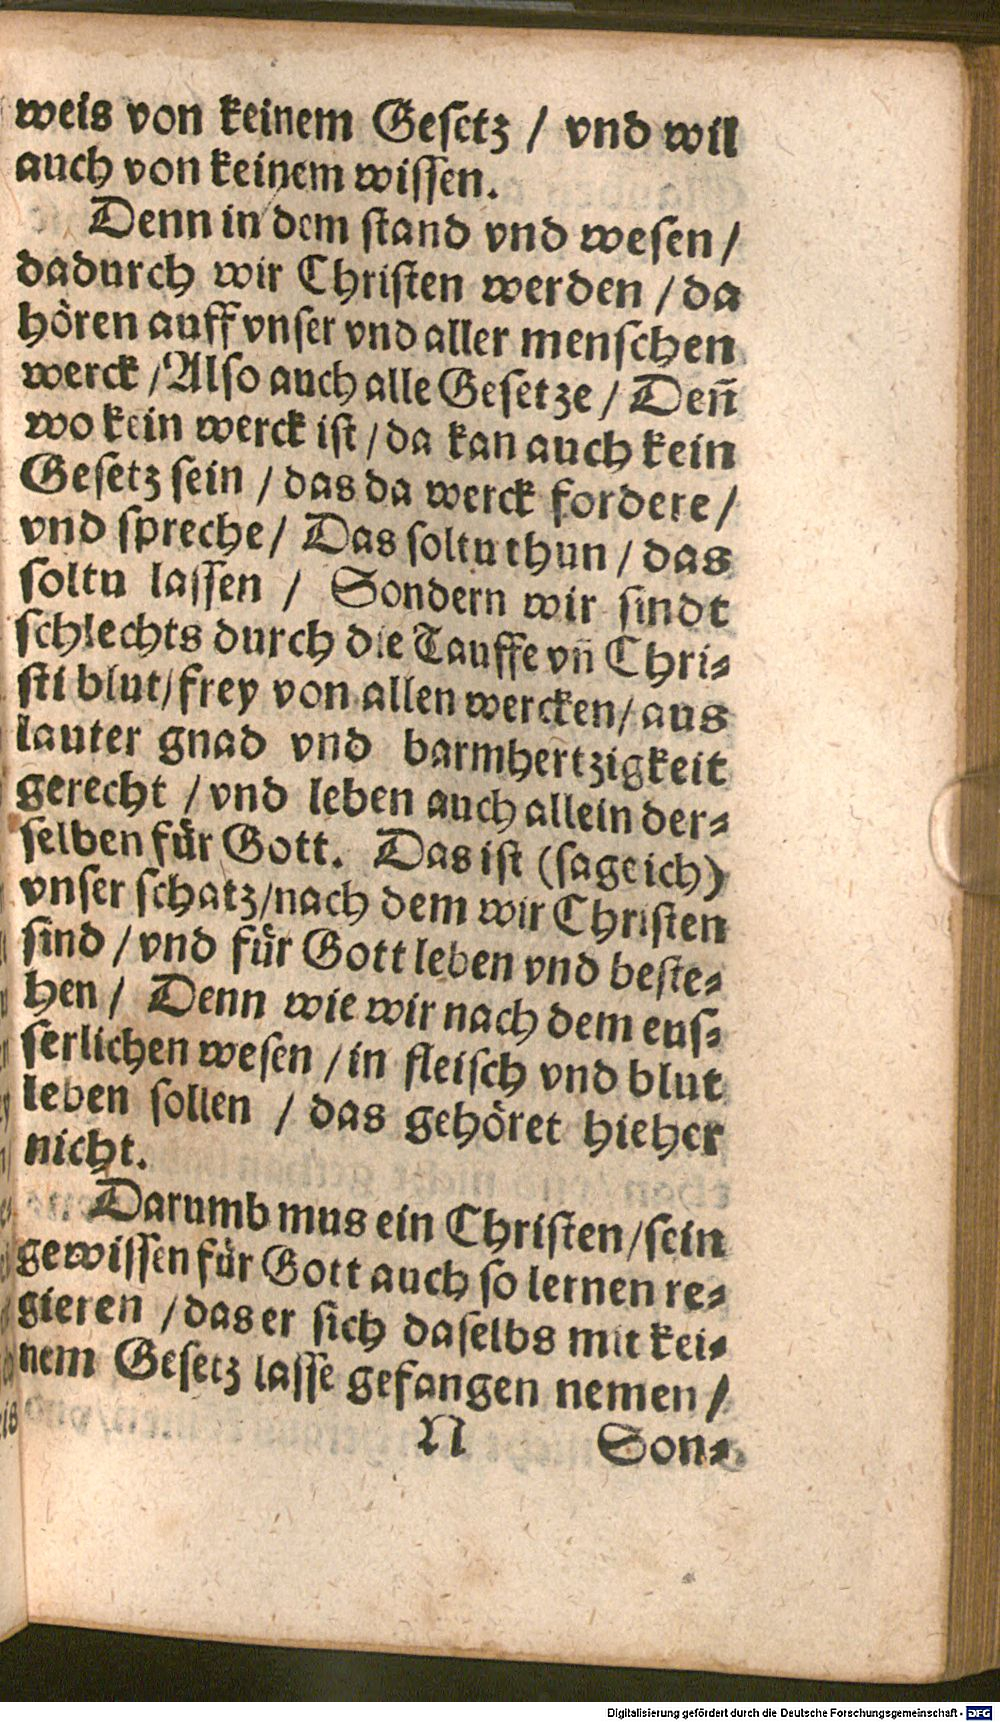 weis von keinem Gesetz / vnd wil
auch von keinem wissen.
Denn in dem stand vnd wesen /
dadurch wir Christen werden / da
hören auff vnser vnd aller menschen
werck / Also auch alle Gesetze / Deñ
wo kein werck ist / da kan auch kein
Gesetz sein / das da werck fordere /
vnd spreche / Das soltu thun / das
soltu lassen / Sondern wir sindt
schlechts durch die Tauffe vñ Chri-
sti blut / frey von allen wercken / aus
lauter gnad vnd barmhertzigkeit
gerecht / vnd leben auch allein der-
selben für Gott. Das ist (sage ich)
vnser schatz / nach dem wir Christen
sind / vnd für Gott leben vnd beste-
hen / Denn wie wir nach dem eus-
serlichen wesen / in fleisch vnd blut
leben sollen / das gehöret hieher
nicht.
Darumb mus ein Christen / sein
gewissen für Gott auch so lernen re-
gieren / das er sich daselbs mit kei-
nem Gesetz lasse gefangen nemen /
N Son-
Digitalisierung gefördert durch die Deutsche Forschungsgemeinschaft - DFG